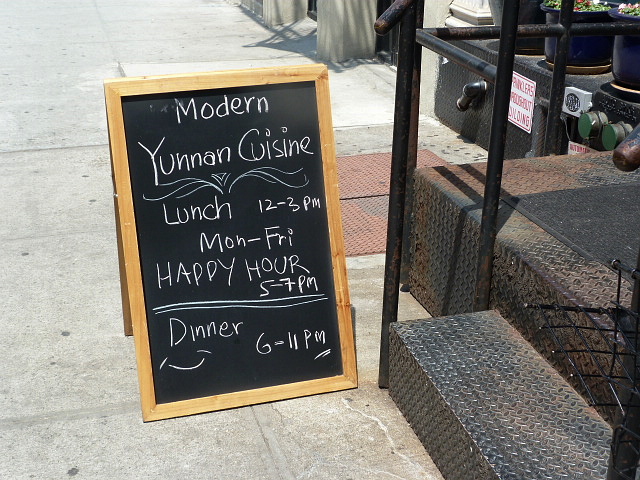 Modern
Yunnan Cuisine
Lunch 12-3 pm
Mon-Fri
HAPPY HOUR
5-7 pm
Dinner 6-11 PM
SPRINKLERS
THROUGHOUT
BUILDING